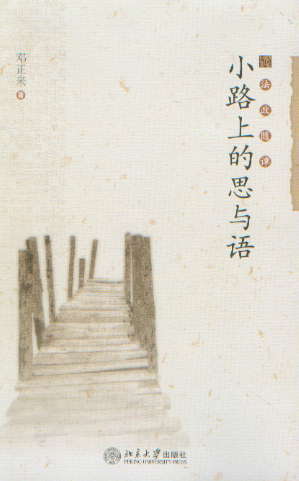 邓正来 著
法政随谭
小路上的思与语
北京大学出版社
PEKING UNIVERSITY PRESS